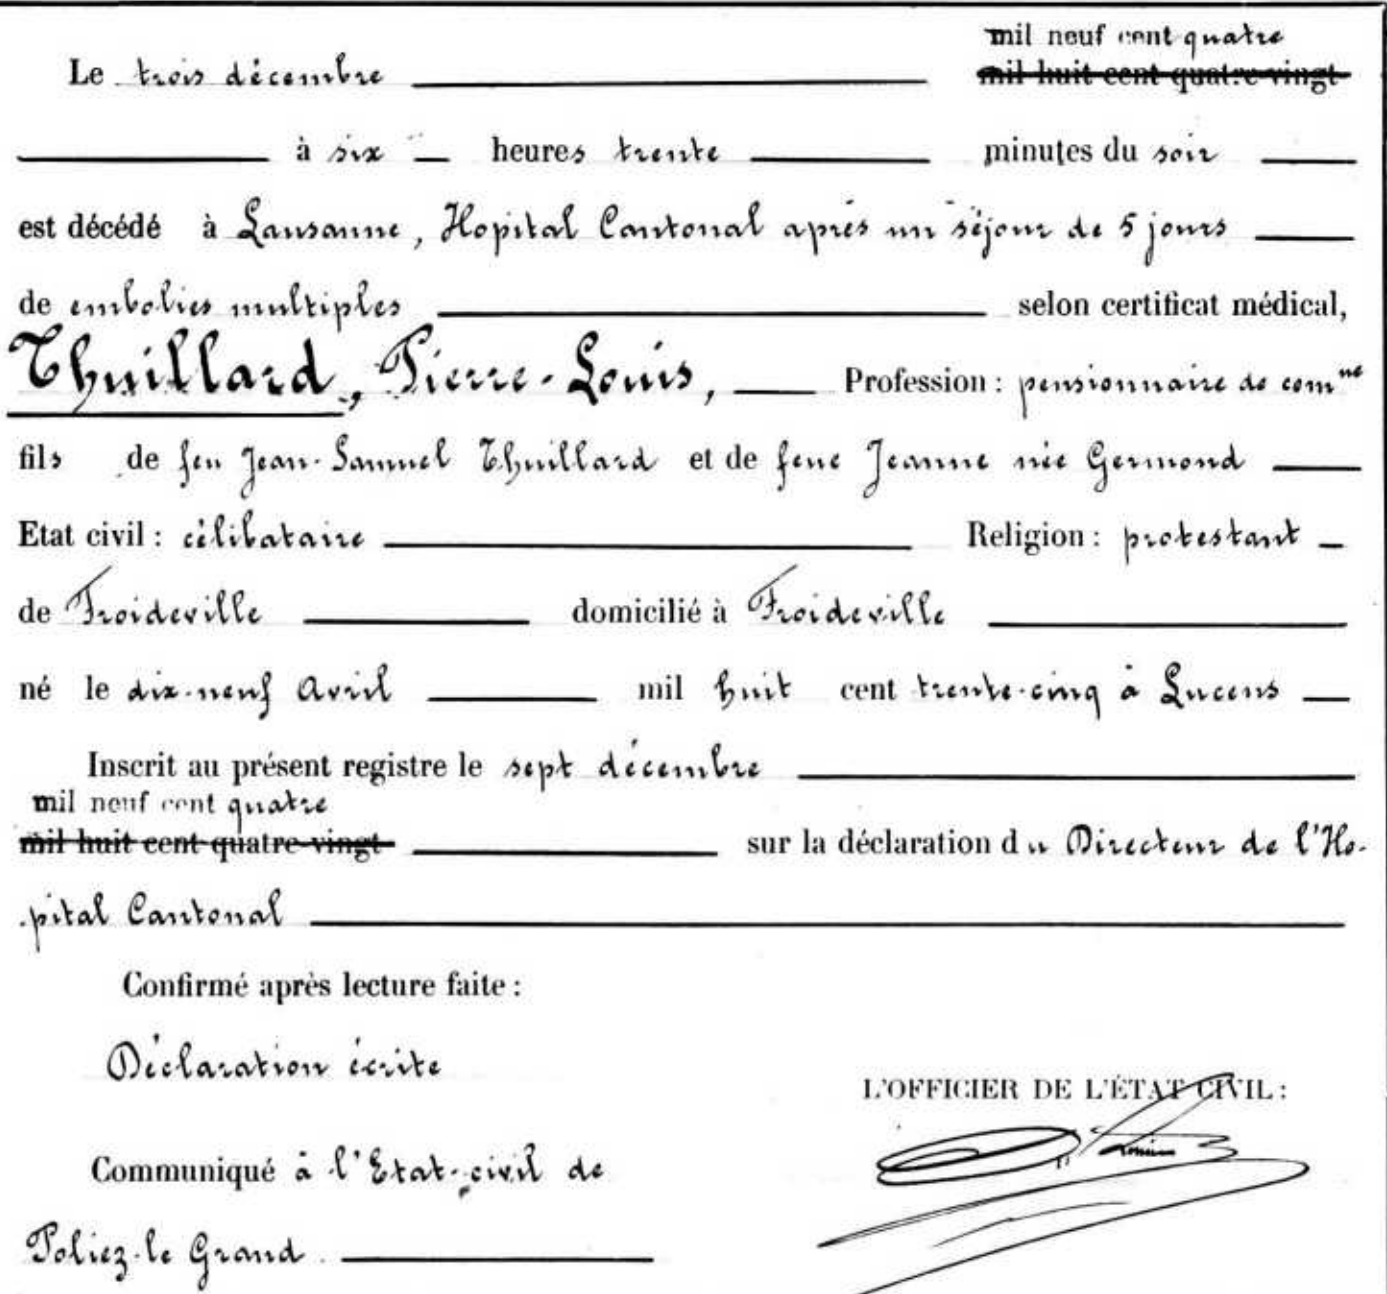 mil neuf cent quatre
Le trois décembre mil huit cent quatre-vingt
à six heures trente minutes du soir
est décédé à Lausanne, Hopital Cantonal après un séjour de 5 jours
de embolies multiples selon certificat médical,
Thuillard, Pierre-Louis, Profession : pensionnaire de com^ne
fils de feu Jean-Samuel Thuillard et de feue Jeanne née Germond
Etat civil : célibataire Religion : protestant
de Froideville domicilié à Froideville
né le dix-neuf Avril mil huit cent trente-cinq à Lucens
Inscrit au présent registre le sept décembre
mil neuf cent quatre
mil huit cent quatre-vingt sur la déclaration du Directeur de l'Ho-
-pital Cantonal
Confirmé après lecture faite :
Déclaration écrite
L'OFFICIER DE L'ÉTAT CIVIL :
Communiqué à l'Etat-civil de
Poliez-le Grand.